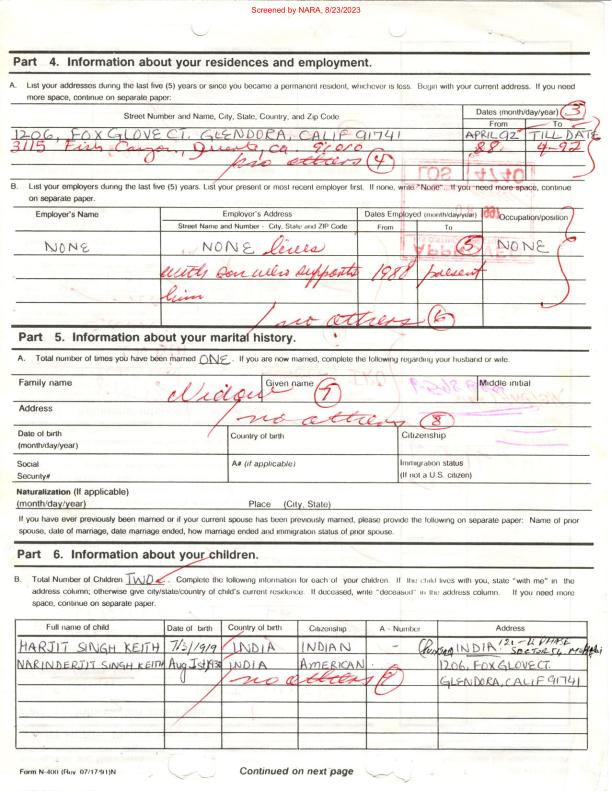 Screened by NARA, 8/23/2023
Part 4. Information about your residences and employment.
A. List your addresses during the last five (5) years or since you became a permanent resident, whichever is less. Begin with your current address. If you need
more space, continue on separate paper:
Street Number and Name, City, State, Country, and Zip Code
Dates (month/day/year) 3
From To
1206, FOX GLOVE CT. GLENDORA, CALIF 91741 APRIL 92 TILL DATE
3115 Fish Canyon, Duarte, Ca. 91010 88 4-92
no others 4
B. List your employers during the last five (5) years. List your present or most recent employer first. If none, write "None". If you need more space, continue
on separate paper.
Employer's Name Employer's Address Dates Employed (month/day/year) Occupation/position
Street Name and Number - City, State and ZIP Code From To
NONE NONE lives 5 NONE
with son who supports 1988 present
him
no others 6
Part 5. Information about your marital history.
A. Total number of times you have been married ONE. If you are now married, complete the following regarding your husband or wife.
Family name Given name Middle initial
Widow 7
Address
no others 8
Date of birth
(month/day/year)
Country of birth
Citizenship
Social
Security#
A# (if applicable)
Immigration status
(If not a U.S. citizen)
Naturalization (If applicable)
(month/day/year) Place (City, State)
If you have ever previously been married or if your current spouse has been previously married, please provide the following on separate paper: Name of prior
spouse, date of marriage, date marriage ended, how marriage ended and immigration status of prior spouse.
Part 6. Information about your children.
B. Total Number of Children TWO. Complete the following information for each of your children. If the child lives with you, state "with me" in the
address column; otherwise give city/state/country of child's current residence. If deceased, write "deceased" in the address column. If you need more
space, continue on separate paper.
Full name of child Date of birth Country of birth Citizenship A - Number Address
HARJIT SINGH KEITH INDIA INDIAN - INDIA
NARINDERJIT SINGH KEITH INDIA AMERICAN 1206, FOX GLOVE CT.
no others GLENDORA, CALIF 91741
Form N-400 (Rev. 07/17/91)N
Continued on next page